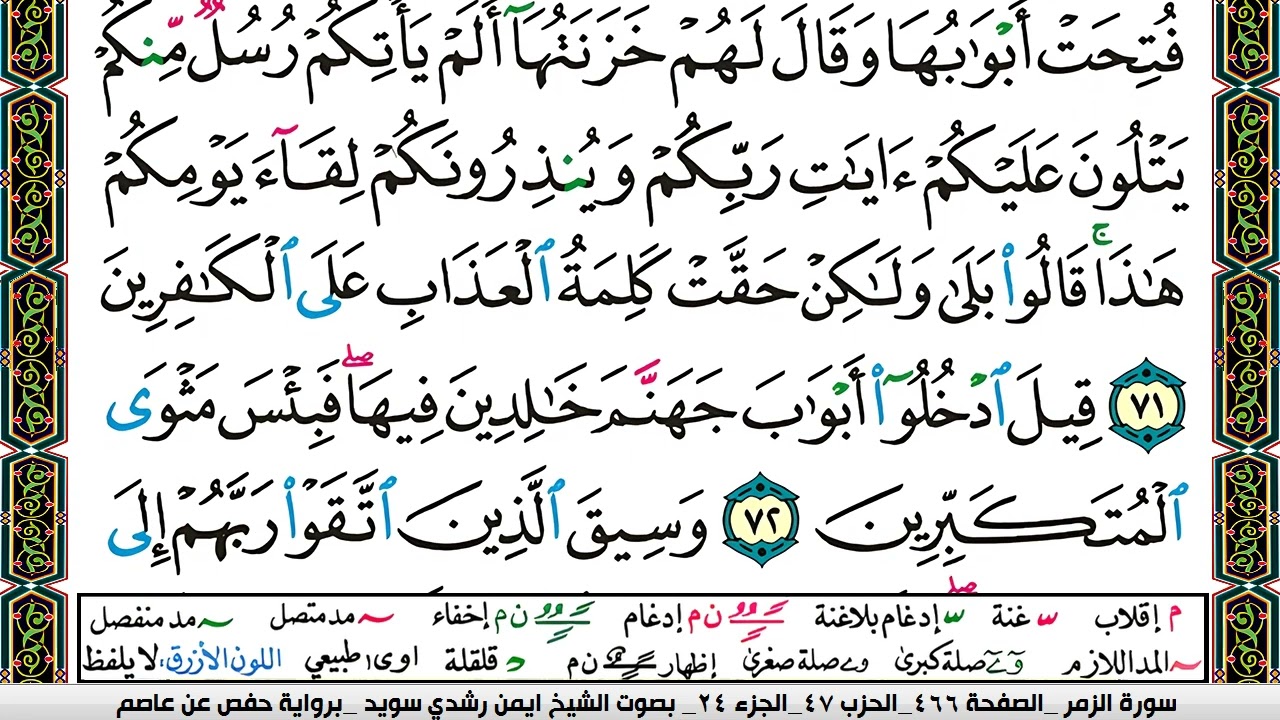 فُتِحَتْ أَبْوَٰبُهَا وَقَالَ لَهُمْ خَزَنَتُهَآ أَلَمْ يَأْتِكُمْ رُسُلٌ مِّنكُمْ
يَتْلُونَ عَلَيْكُمْ ءَايَٰتِ رَبِّكُمْ وَيُنذِرُونَكُمْ لِقَآءَ يَوْمِكُمْ
هَٰذَا ۚ قَالُوا۟ بَلَىٰ وَلَٰكِنْ حَقَّتْ كَلِمَةُ ٱلْعَذَابِ عَلَى ٱلْكَٰفِرِينَ
٧١ قِيلَ ٱدْخُلُوٓا۟ أَبْوَٰبَ جَهَنَّمَ خَٰلِدِينَ فِيهَا ۖ فَبِئْسَ مَثْوَى
ٱلْمُتَكَبِّرِينَ ٧٢ وَسِيقَ ٱلَّذِينَ ٱتَّقَوْا۟ رَبَّهُمْ إِلَى
م إقلاب س غنة س إدغام بلاغنة ن م إدغام ن م إخفاء ~ مد متصل ~ مد منفصل
~ المد اللازم وے صلة كبرى وے صلة صغرى إظهار ن م د قلقلة اوى طبيعي اللون الأزرق، لا يلفظ
سورة الزمر _الصفحة ٤٦٦_الحزب ٤٧_الجزء ٢٤_ بصوت الشيخ ايمن رشدي سويد _برواية حفص عن عاصم